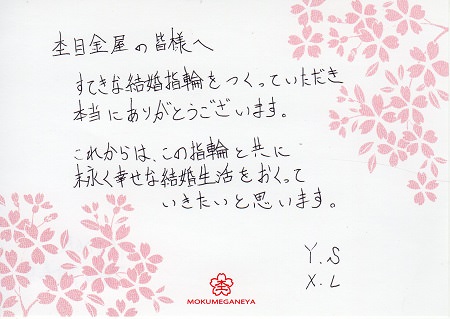 杢目金屋の皆様へ
すてきな結婚指輪をつくっていただき
本当にありがとうございます。
これからは、この指輪と共に
末永く幸せな結婚生活をおくって
いきたいと思います。
Y.S
X.L
MOKUMEGANEYA